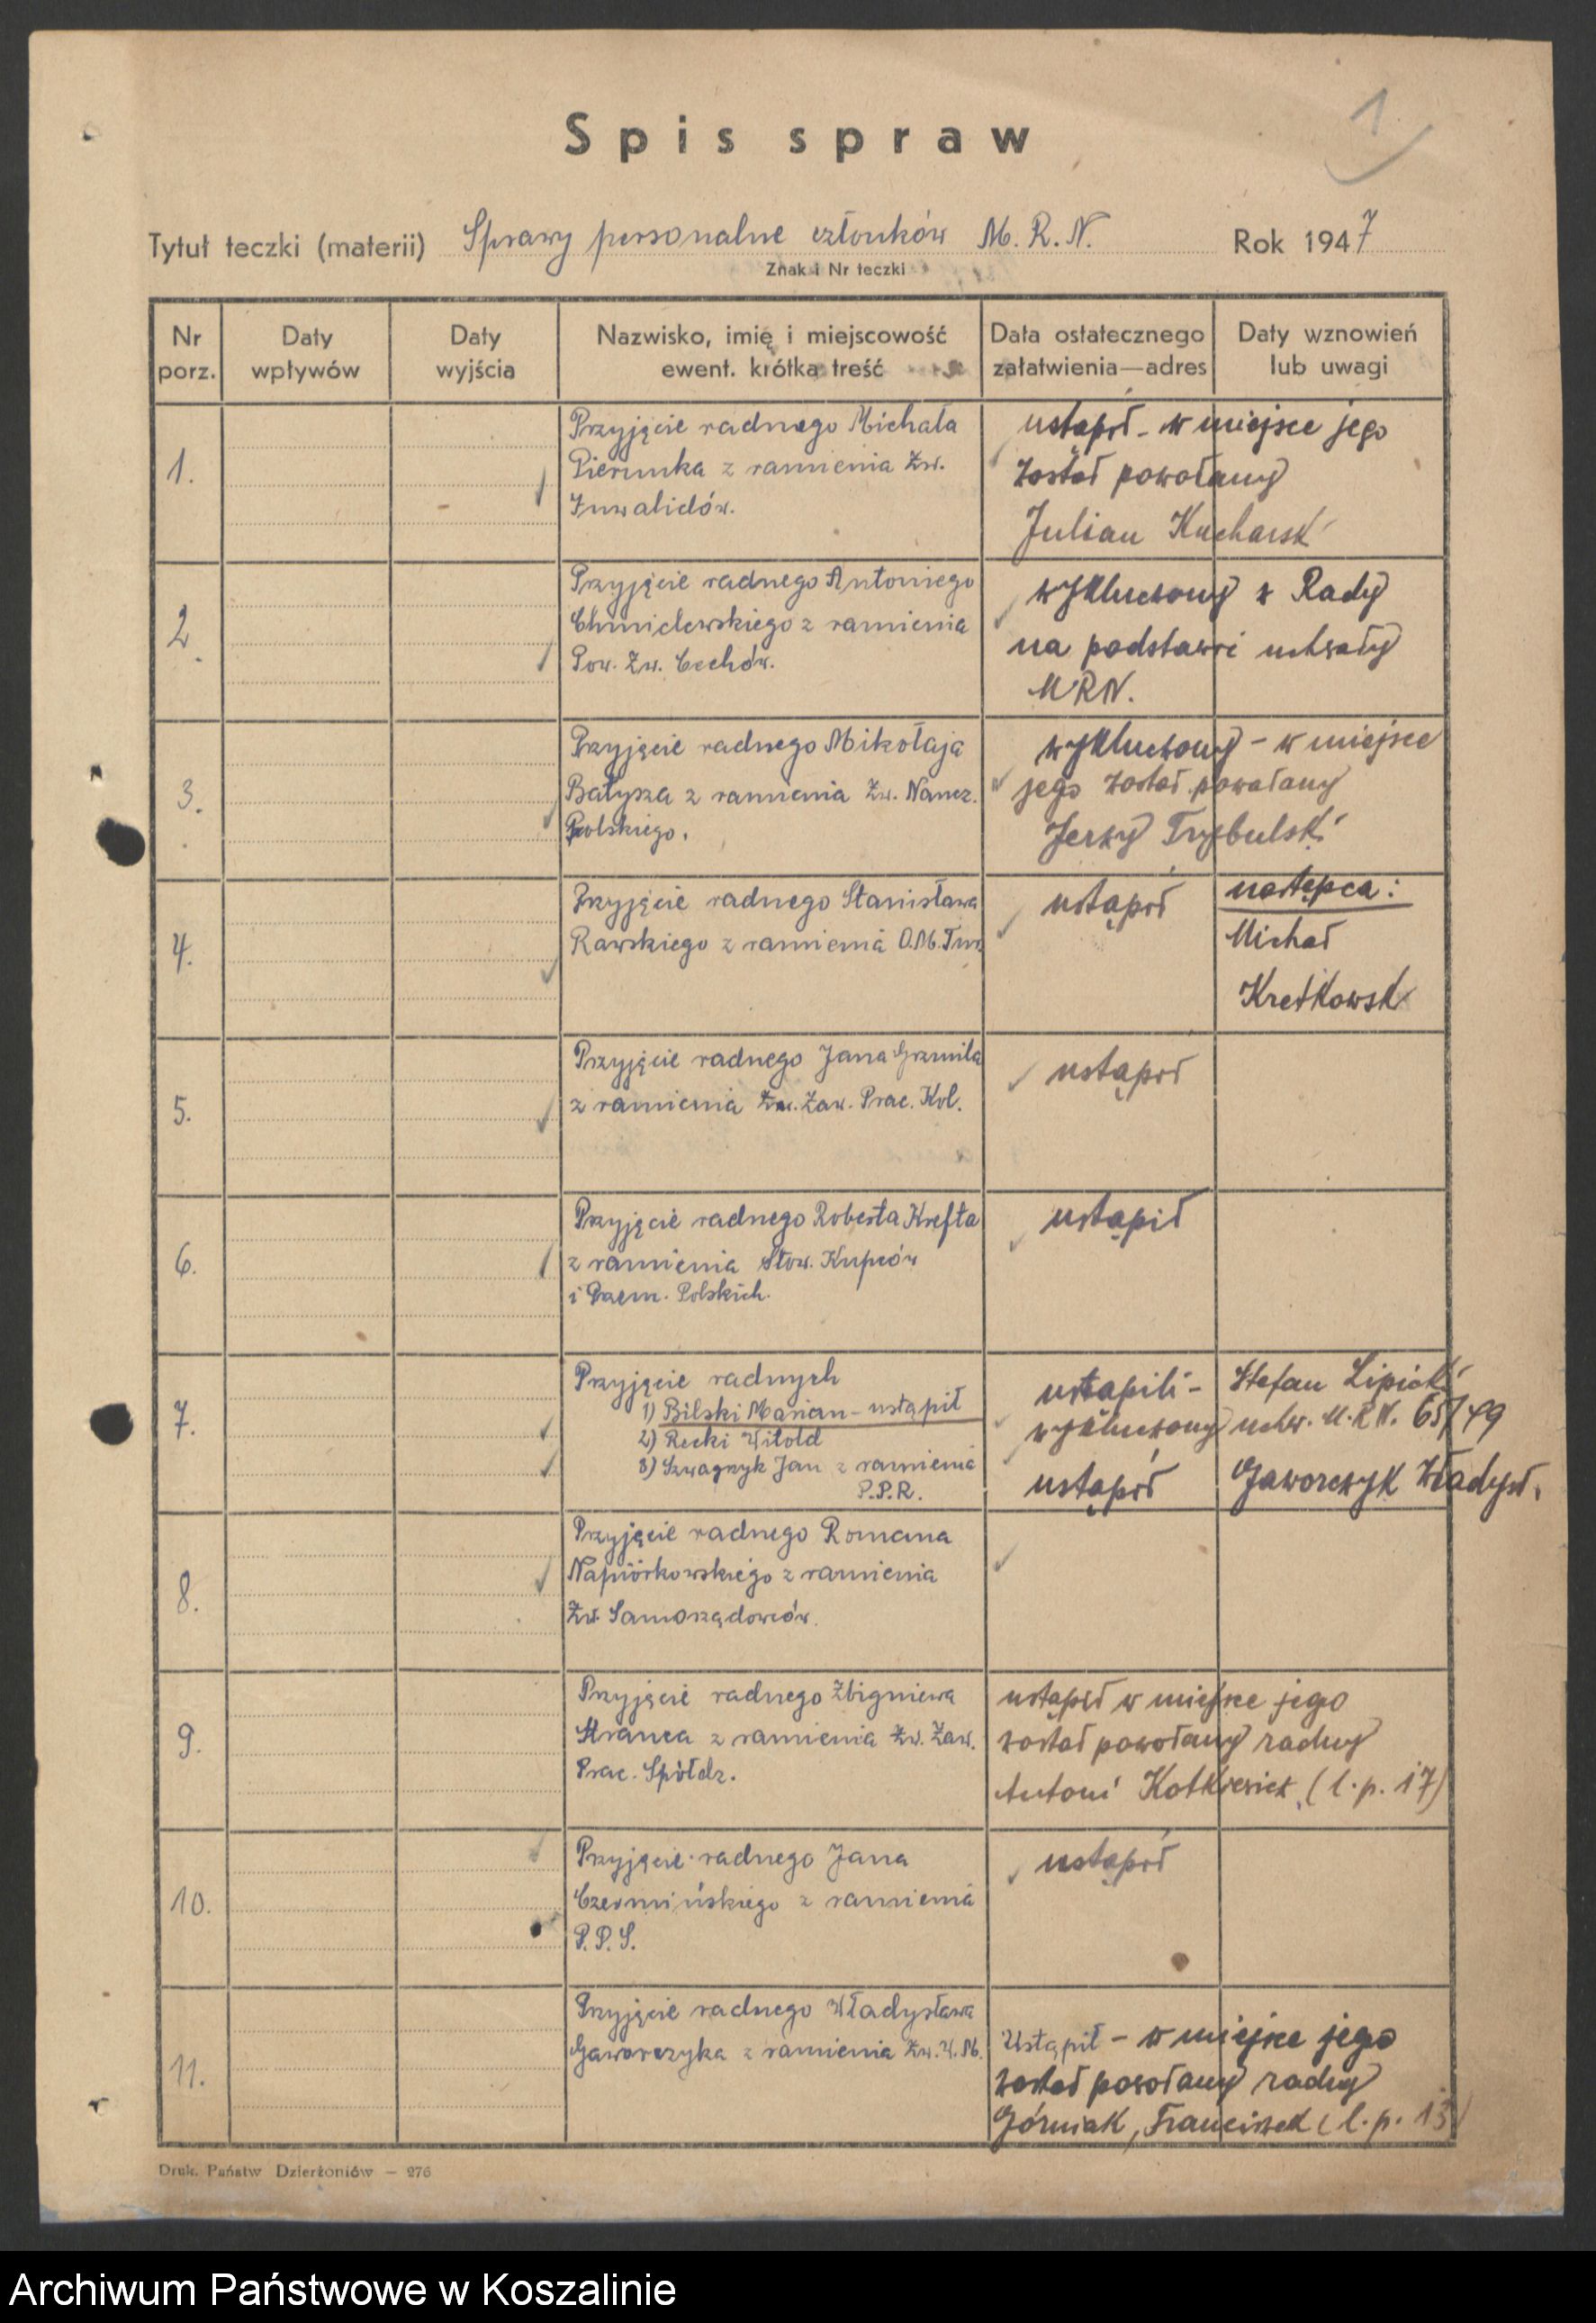 1
Spis spraw
Tytuł teczki (materii) Sprawy personalne członków M. R. N. Rok 1947
Znak i Nr teczki
Nr porz.
Daty wpływów
Daty wyjścia
Nazwisko, imię i miejscowość
ewent. krótka treść
Data ostatecznego
załatwienia—adres
Daty wznowień
lub uwagi
1.
Przyjęcie radnego Michała
Pierunka z ramienia Zw.
Inwalidów.
ustąpił - w miejsce jego
został powołany
Julian Kucharski
2.
Przyjęcie radnego Antoniego
Chmielewskiego z ramienia
Pow. Zw. Cechów.
wykluczony z Rady
na podstawie uchwały
MRN.
3.
Przyjęcie radnego Mikołaja
Bałysza z ramienia Zw. Naucz.
Polskiego.
wykluczony - w miejsce
jego został powołany
Jerzy Trybulski
4.
Przyjęcie radnego Stanisława
Rawskiego z ramienia O.M. Tur.
ustąpił
następca:
Michał
Kretkowski
5.
Przyjęcie radnego Jana Grzmila
z ramienia Zw. Zaw. Prac. Kol.
ustąpił
6.
Przyjęcie radnego Roberta Krefta
z ramienia Stow. Kupców
i Przem. Polskich.
ustąpił
7.
Przyjęcie radnych
1) Bilski Marian - ustąpił
2) Recki Witold
3) Szwagzyk Jan z ramienia
P.P.R.
ustąpili -
wykluczony
ustąpił
Stefan Lipicki
uchw. M.R.N. 65/49
Gaworczyk Władysł.
8.
Przyjęcie radnego Romana
Napiórkowskiego z ramienia
Zw. Samorządowców.
9.
Przyjęcie radnego Zbigniewa
z ramienia Zw. Zaw.
Prac. Spółdz.
ustąpił w miejsce jego
został powołany radny
Antoni Kotkiewicz (l. p. 17)
10.
Przyjęcie radnego Jana
Czermińskiego z ramienia
P. P. S.
ustąpił
11.
Przyjęcie radnego Władysława
Gaworczyka z ramienia Zw. W. M.
Ustąpił - w miejsce jego
został powołany radny
Górniak, Franciszek (l. p. 13)
Druk. Państw Dzierżoniów — 276
Archiwum Państwowe w Koszalinie